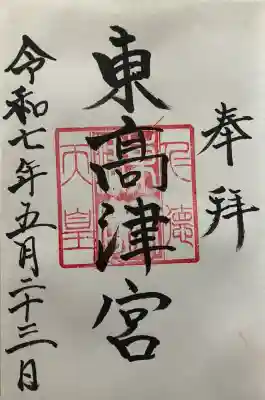 奉拝
東高津宮
仁徳
天皇
令和七年五月二十三日